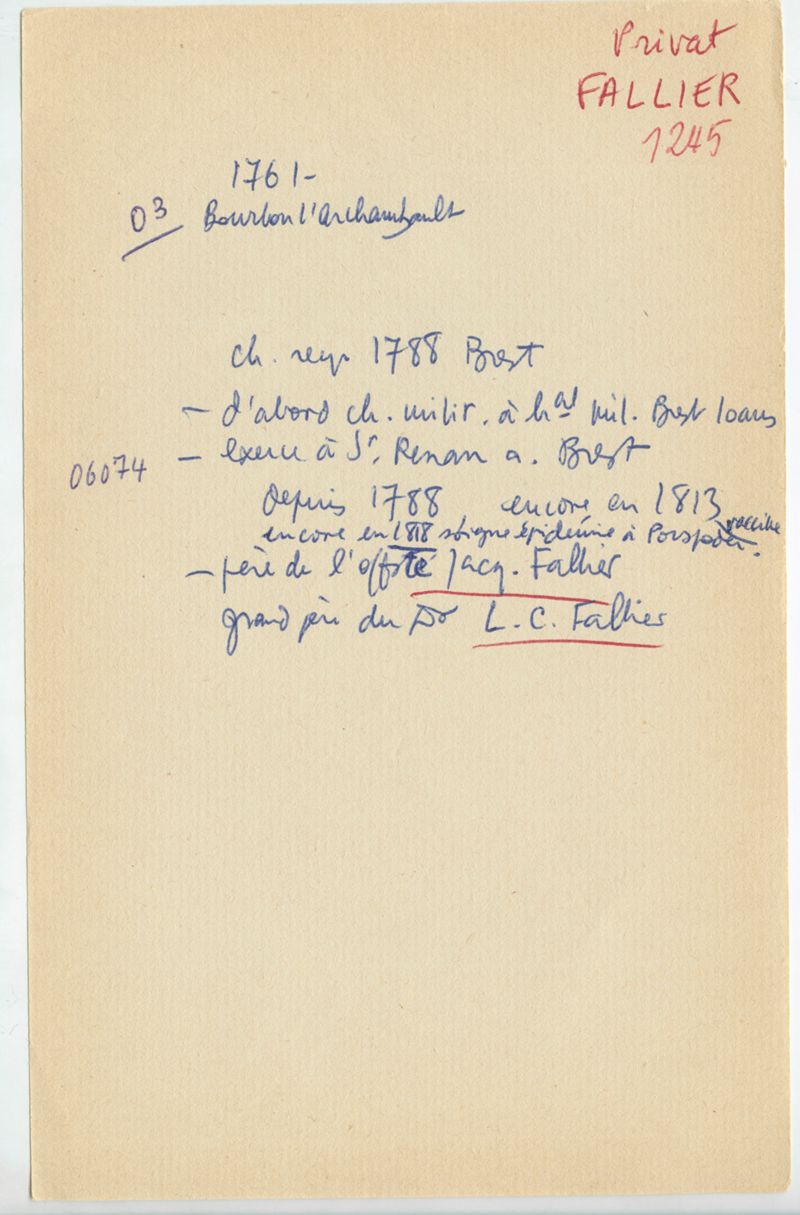 Privat
FALLIER
1245
1761-
03 Bourbon l'Archambault
ch. reçu 1788 Brest
- d'abord ch. milit. à hal mil. Brest 10 ans
06074 - exerce à St. Renan a. Brest
depuis 1788 encore en 1813
vaccine
encore en 1818 soigne épidémie à Porspoder.
- père de l'offsté Jacq. Fallier
grand père du Dr L. C. Fallier